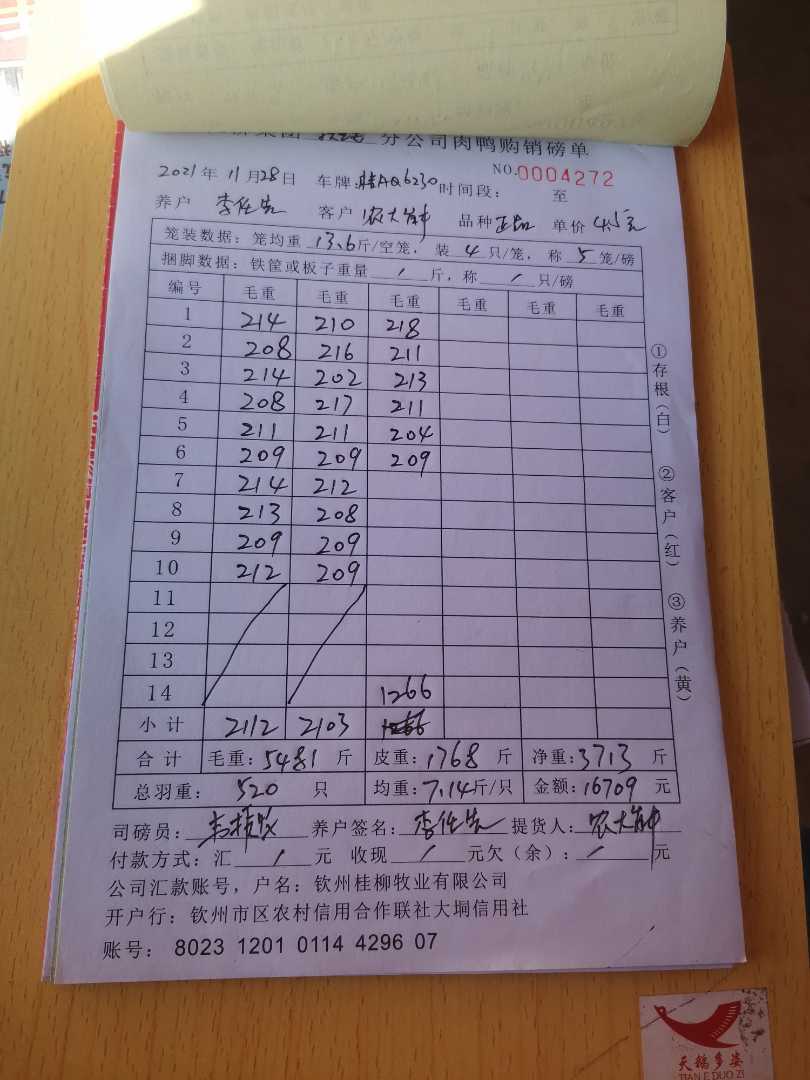 分公司肉鸭购销磅单
2021年11月28日 车牌:桂AQ6230 时间段: 至 NO.0004272
养户 李任先 客户 农大 品种 正品 单价 4.5元
笼装数据:笼均重 13.6 斤/空笼,装 4 只/笼,称 5 笼/磅
捆脚数据:铁筐或板子重量 / 斤,称 / 只/磅
编号 毛重 毛重 毛重 毛重 毛重 毛重
1 214 210 218
2 208 216 211
3 214 202 213
4 208 217 211
5 211 211 204
6 209 209 209
7 214 212
8 213 208
9 209 209
10 212 209
11
12
13
14 1266
小计 2112 2103
合计 毛重:5481 斤 皮重:1768 斤 净重:3713 斤
总羽重: 520 只 均重:7.14斤/只 金额:16709 元
司磅员: 养户签名:李任先 提货人:农大
付款方式:汇 / 元 收现 / 元欠(余): / 元
公司汇款账号,户名:钦州桂柳牧业有限公司
开户行:钦州市区农村信用合作联社大垌信用社
账号: 8023 1201 0114 4296 07
①存根(白) ②客户(红) ③养户(黄)
天鹅多姿
TIAN E DUO ZI